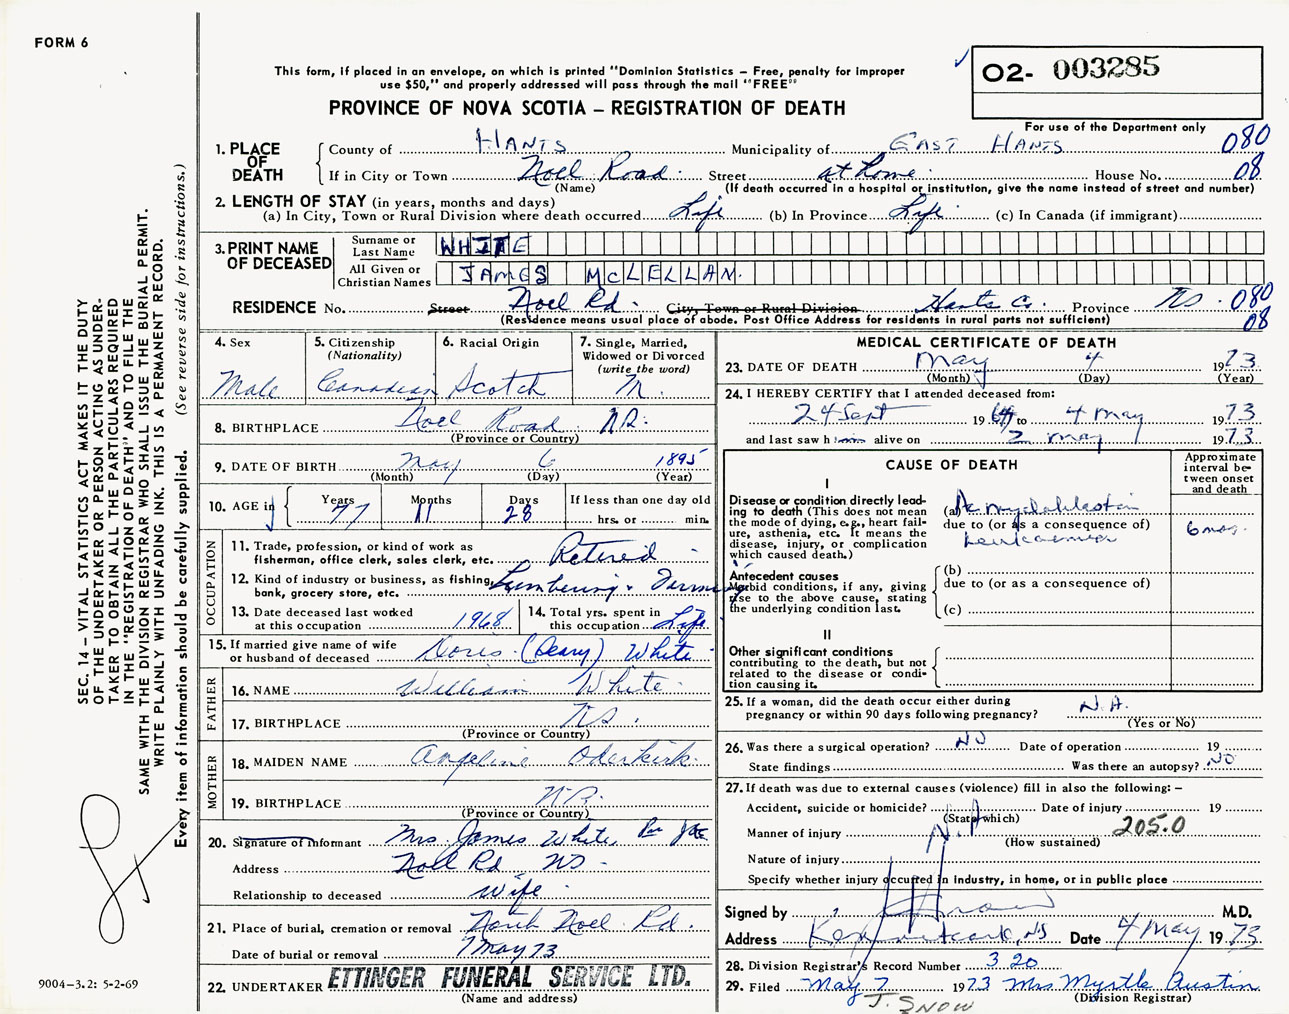 FORM 6
This form, if placed in an envelope, on which is printed "Dominion Statistics – Free, penalty for improper
use $50," and properly addressed will pass through the mail "FREE"
PROVINCE OF NOVA SCOTIA – REGISTRATION OF DEATH
02- 003285
For use of the Department only
1. PLACE OF DEATH
County of HANTS Municipality of EAST HANTS 080
If in City or Town Noel Road Street at home House No. 08
(Name) (If death occurred in a hospital or institution, give the name instead of street and number)
2. LENGTH OF STAY (in years, months and days)
(a) In City, Town or Rural Division where death occurred Life (b) In Province Life (c) In Canada (if immigrant)
3. PRINT NAME OF DECEASED
Surname or Last Name WHITE
All Given or Christian Names JAMES McLELLAN.
RESIDENCE No. Street Noel Rd. City, Town or Rural Division Hants Co. Province NS. 080
(Residence means usual place of abode. Post Office Address for residents in rural parts not sufficient) 08
4. Sex Male
5. Citizenship (Nationality) Canadian
6. Racial Origin Scotch
7. Single, Married, Widowed or Divorced (write the word) M.
8. BIRTHPLACE Noel Road NS.
(Province or Country)
9. DATE OF BIRTH May 6 1895
(Month) (Day) (Year)
10. AGE in Years 77 Months 11 Days 28 If less than one day old hrs. or min.
OCCUPATION
11. Trade, profession, or kind of work as fisherman, office clerk, sales clerk, etc. Retired
12. Kind of industry or business, as fishing, bank, grocery store, etc. Lumbering & Farming
13. Date deceased last worked at this occupation 1968
14. Total yrs. spent in this occupation Life
15. If married give name of wife or husband of deceased Doris (Deary) White
FATHER
16. NAME William White
17. BIRTHPLACE NS.
(Province or Country)
MOTHER
18. MAIDEN NAME Angeline Oderkirk
19. BIRTHPLACE NS.
(Province or Country)
20. Signature of Informant Mrs. James White Per
Address Noel Rd. NS
Relationship to deceased Wife
21. Place of burial, cremation or removal North Noel Rd.
Date of burial or removal 7 May 73
22. UNDERTAKER ETTINGER FUNERAL SERVICE LTD.
(Name and address)
MEDICAL CERTIFICATE OF DEATH
23. DATE OF DEATH May 4 1973
(Month) (Day) (Year)
24. I HEREBY CERTIFY that I attended deceased from:
24 Sept 1964 to 4 May 1973
and last saw him alive on 2 May 1973
CAUSE OF DEATH
Approximate interval between onset and death
I
Disease or condition directly leading to death (This does not mean the mode of dying, e.g., heart failure, asthenia, etc. It means the disease, injury, or complication which caused death.)
(a) Ac myeloblastic
due to (or as a consequence of)
Leukaemia
6 mos.
Antecedent causes
Morbid conditions, if any, giving rise to the above cause, stating the underlying condition last.
(b)
due to (or as a consequence of)
(c)
II
Other significant conditions contributing to the death, but not related to the disease or condition causing it.
25. If a woman, did the death occur either during pregnancy or within 90 days following pregnancy? N.A.
(Yes or No)
26. Was there a surgical operation? NO Date of operation 19
State findings Was there an autopsy? NO
27. If death was due to external causes (violence) fill in also the following: –
Accident, suicide or homicide? Date of injury 19
(State which)
Manner of injury N.A 205.0
(How sustained)
Nature of injury
Specify whether injury occurred in industry, in home, or in public place
Signed by M.D.
Address Kennetcook, NS Date 4 May 1973
28. Division Registrar's Record Number 320
29. Filed May 7 1973 Mrs Myrtle Austin
(Division Registrar)
J. SNOW
SEC. 14 – VITAL STATISTICS ACT MAKES IT THE DUTY
OF THE UNDERTAKER OR PERSON ACTING AS UNDER-
TAKER TO OBTAIN ALL THE PARTICULARS REQUIRED
IN THE "REGISTRATION OF DEATH" AND TO FILE THE
SAME WITH THE DIVISION REGISTRAR WHO SHALL ISSUE THE BURIAL PERMIT.
WRITE PLAINLY WITH UNFADING INK. THIS IS A PERMANENT RECORD.
Every item of information should be carefully supplied. (See reverse side for instructions.)
9004-3.2: 5-2-69